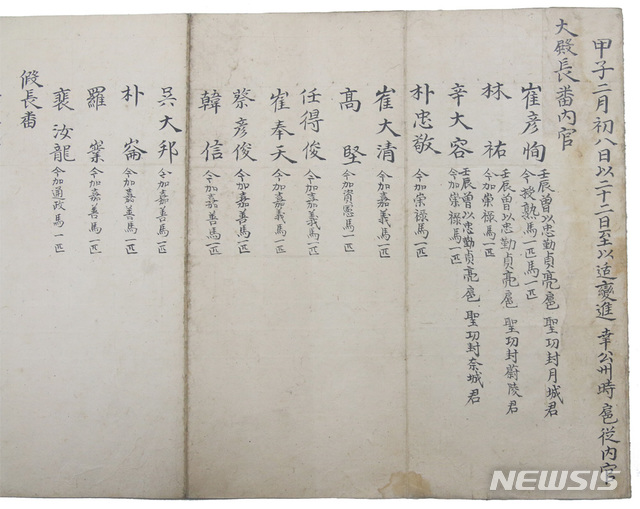 甲子二月初八日以二十二日至以适變進 幸公州時扈從内官
大殿長番内官
崔彦恂 壬辰曾以忠勤貞亮扈 聖功封月城君
今授熟馬一匹馬一匹
林祐 壬辰曾以忠勤貞亮扈 聖功封蔚陵君
今加崇祿馬一匹
辛大容 壬辰曾以忠勤貞亮扈 聖功封奈城君
今加崇祿馬一匹
朴忠敬 今加崇祿馬一匹
崔大清 今加嘉義馬一匹
高堅 今加資憲馬一匹
任得俊 今加嘉義馬一匹
崔奉天 今加嘉義馬一匹
蔡彦俊 今加嘉善馬一匹
韓信 今加嘉善馬一匹
吳大邦 今加嘉善馬一匹
朴崙 今加嘉善馬一匹
羅嶪 今加嘉善馬一匹
裵汝龍 今加通政馬一匹
假長番
NEWSIS